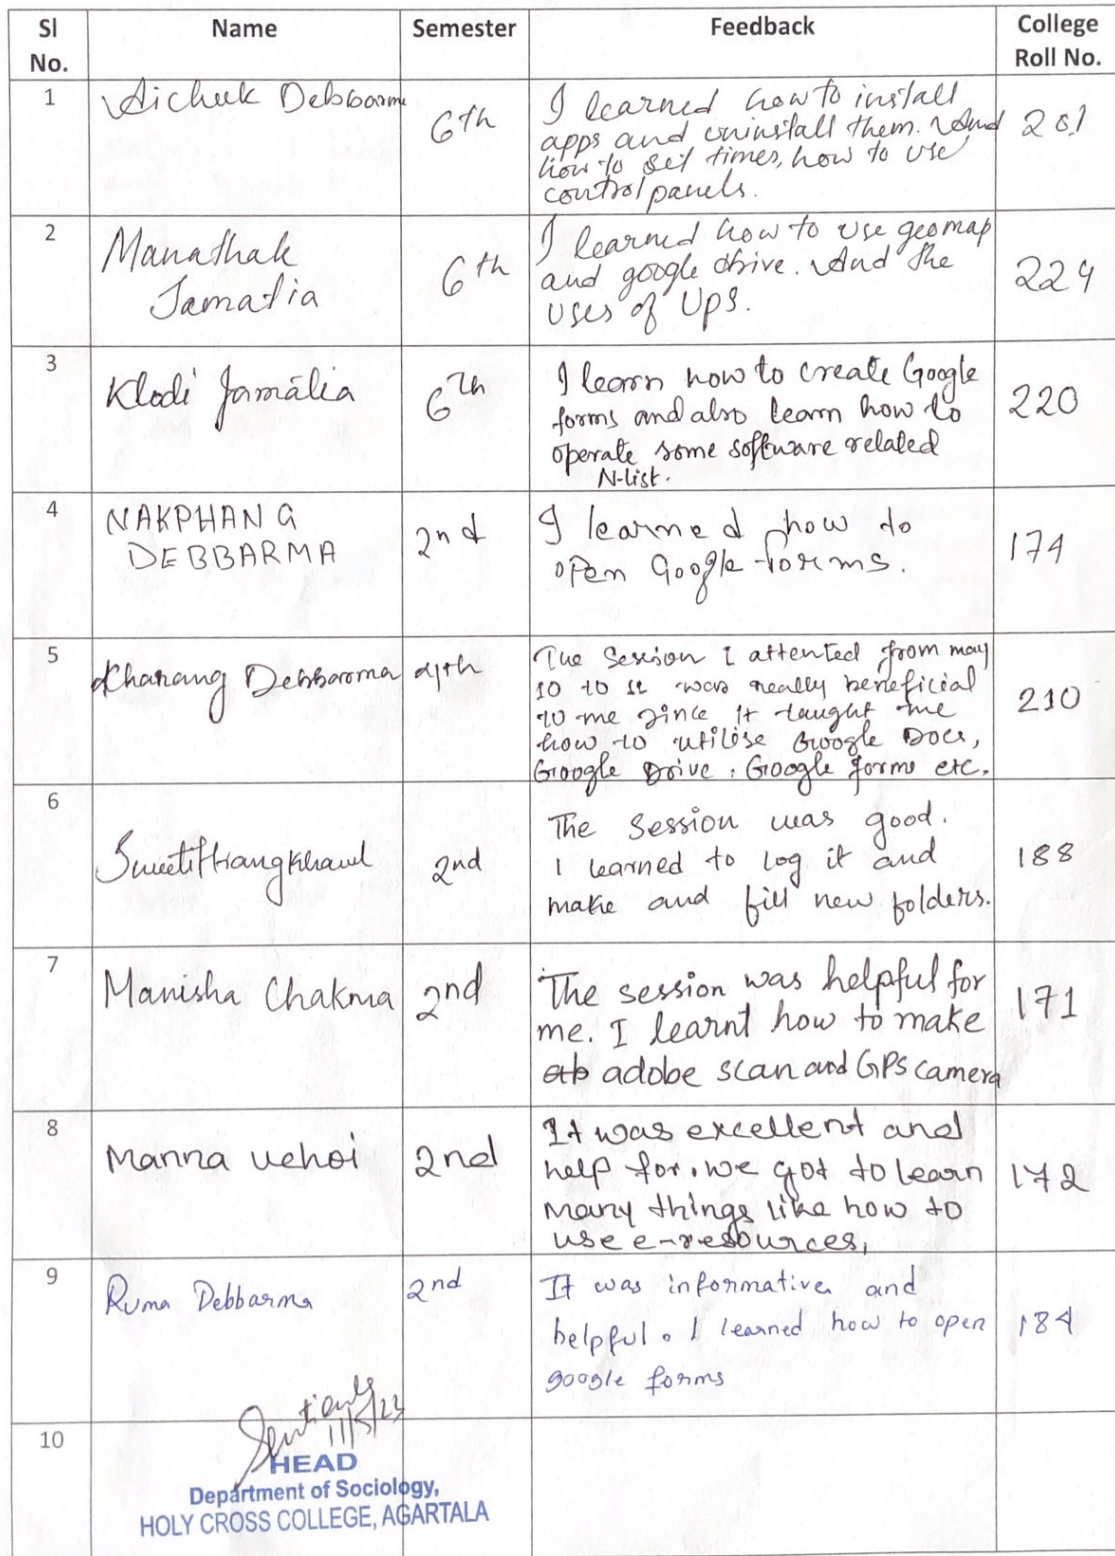 Sl No. Name Semester Feedback College Roll No.
1 Aichuk Debbarma 6th I learned how to install
apps and uninstall them. And
how to set times, how to use
control panels. 201
2 Manathak
Jamatia 6th I learned how to use geomap
and google drive. And the
uses of Ups. 224
3 Klodi Jamatia 6th I learn how to create Google
forms and also learn how to
operate some software related
N-list. 220
4 NAKPHANG
DEBBARMA 2nd I learned how to
open Google forms. 174
5 Kharang Debbarma 4th The Session I attented from may
10 to 11 was really beneficial
to me since it taught me
how to utilise Google Docs,
Google Drive, Google forms etc. 210
6 Sweeti Hrangkhawl 2nd The Session was good.
I learned to log it and
make and fill new folders. 188
7 Manisha Chakma 2nd The session was helpful for
me. I learnt how to make
adobe scan and GPS camera 171
8 Manna uchoi 2nd It was excellent and
help for. we got to learn
many things like how to
use e-resources, 172
9 Ruma Debbarma 2nd It was informative and
helpful. I learned how to open
google forms 184
10
11/5/23
HEAD
Department of Sociology,
HOLY CROSS COLLEGE, AGARTALA